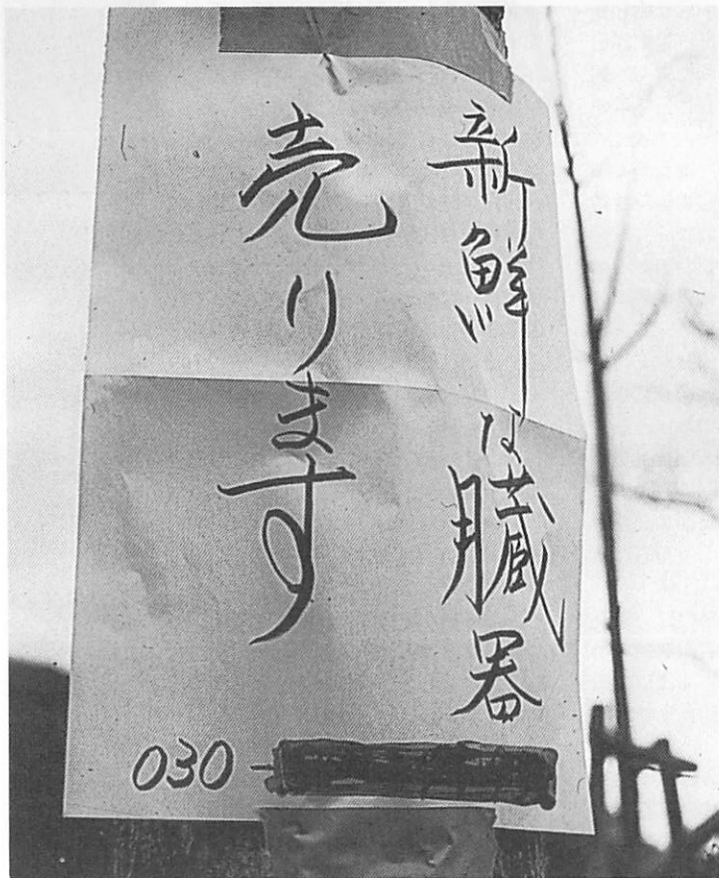 新鮮な臓器
売ります
030-